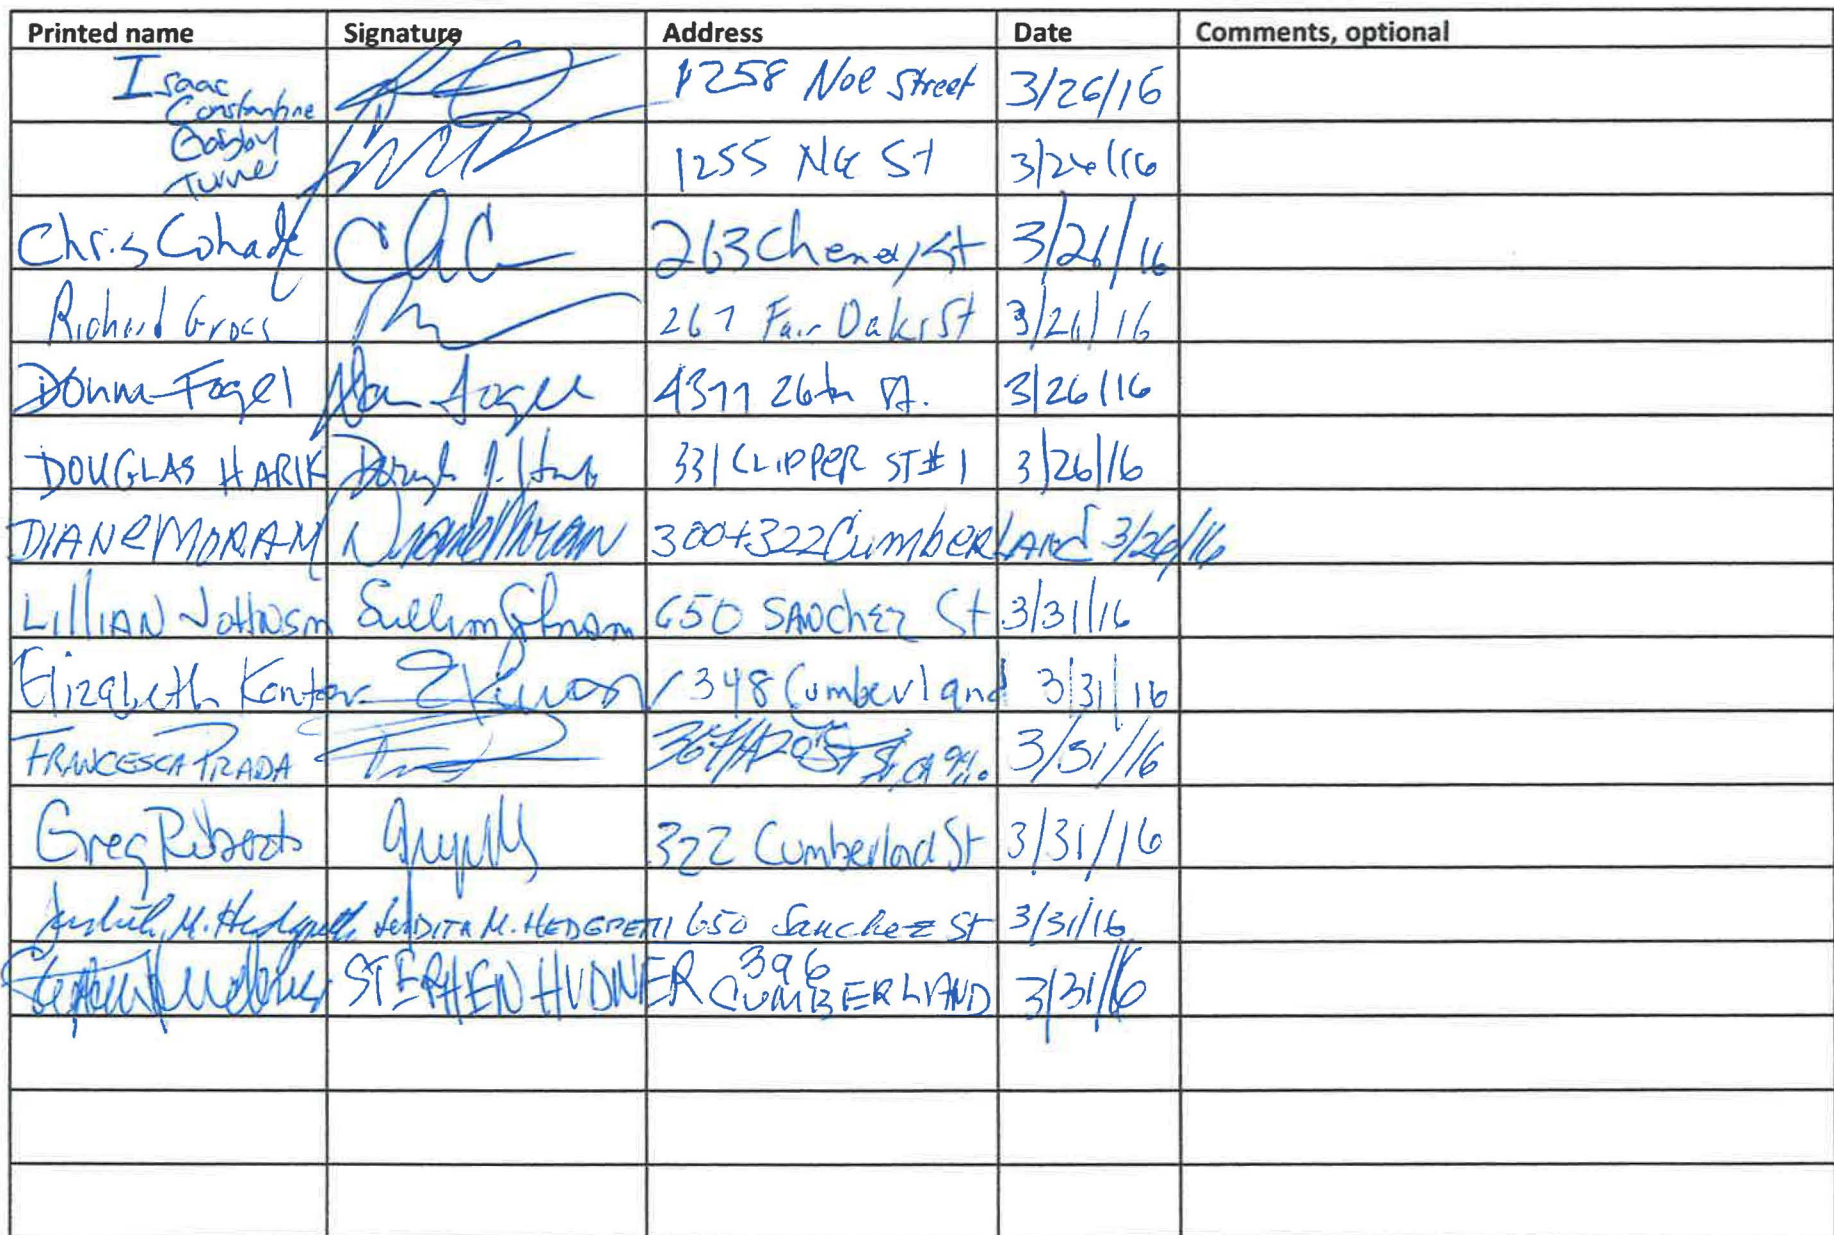 Printed name Signature Address Date Comments, optional
Isaac
Constantine
1258 Noe Street 3/26/16
Turner
1255 Noe St 3/26/16
Chris Cohade 263 Cheney St 3/26/16
Richard Gross 267 Fair Oaks St 3/26/16
Donna Fogel 4377 26th St. 3/26/16
DOUGLAS HARIK 331 CLIPPER ST #1 3/26/16
DIANE MORAN Diane Moran 300+322 Cumberland 3/26/16
LILLIAN JOHNSON 650 SANCHEZ St 3/31/16
Elizabeth Kantor 348 Cumberland 3/31/16
FRANCESCA PRADA 3/31/16
Greg Roberts 322 Cumberland St 3/31/16
Judith M. Hedgpeth JUDITH M. HEDGPETH 650 Sanchez St 3/31/16
STEPHEN HUDNER 396
CUMBERLAND 3/31/16